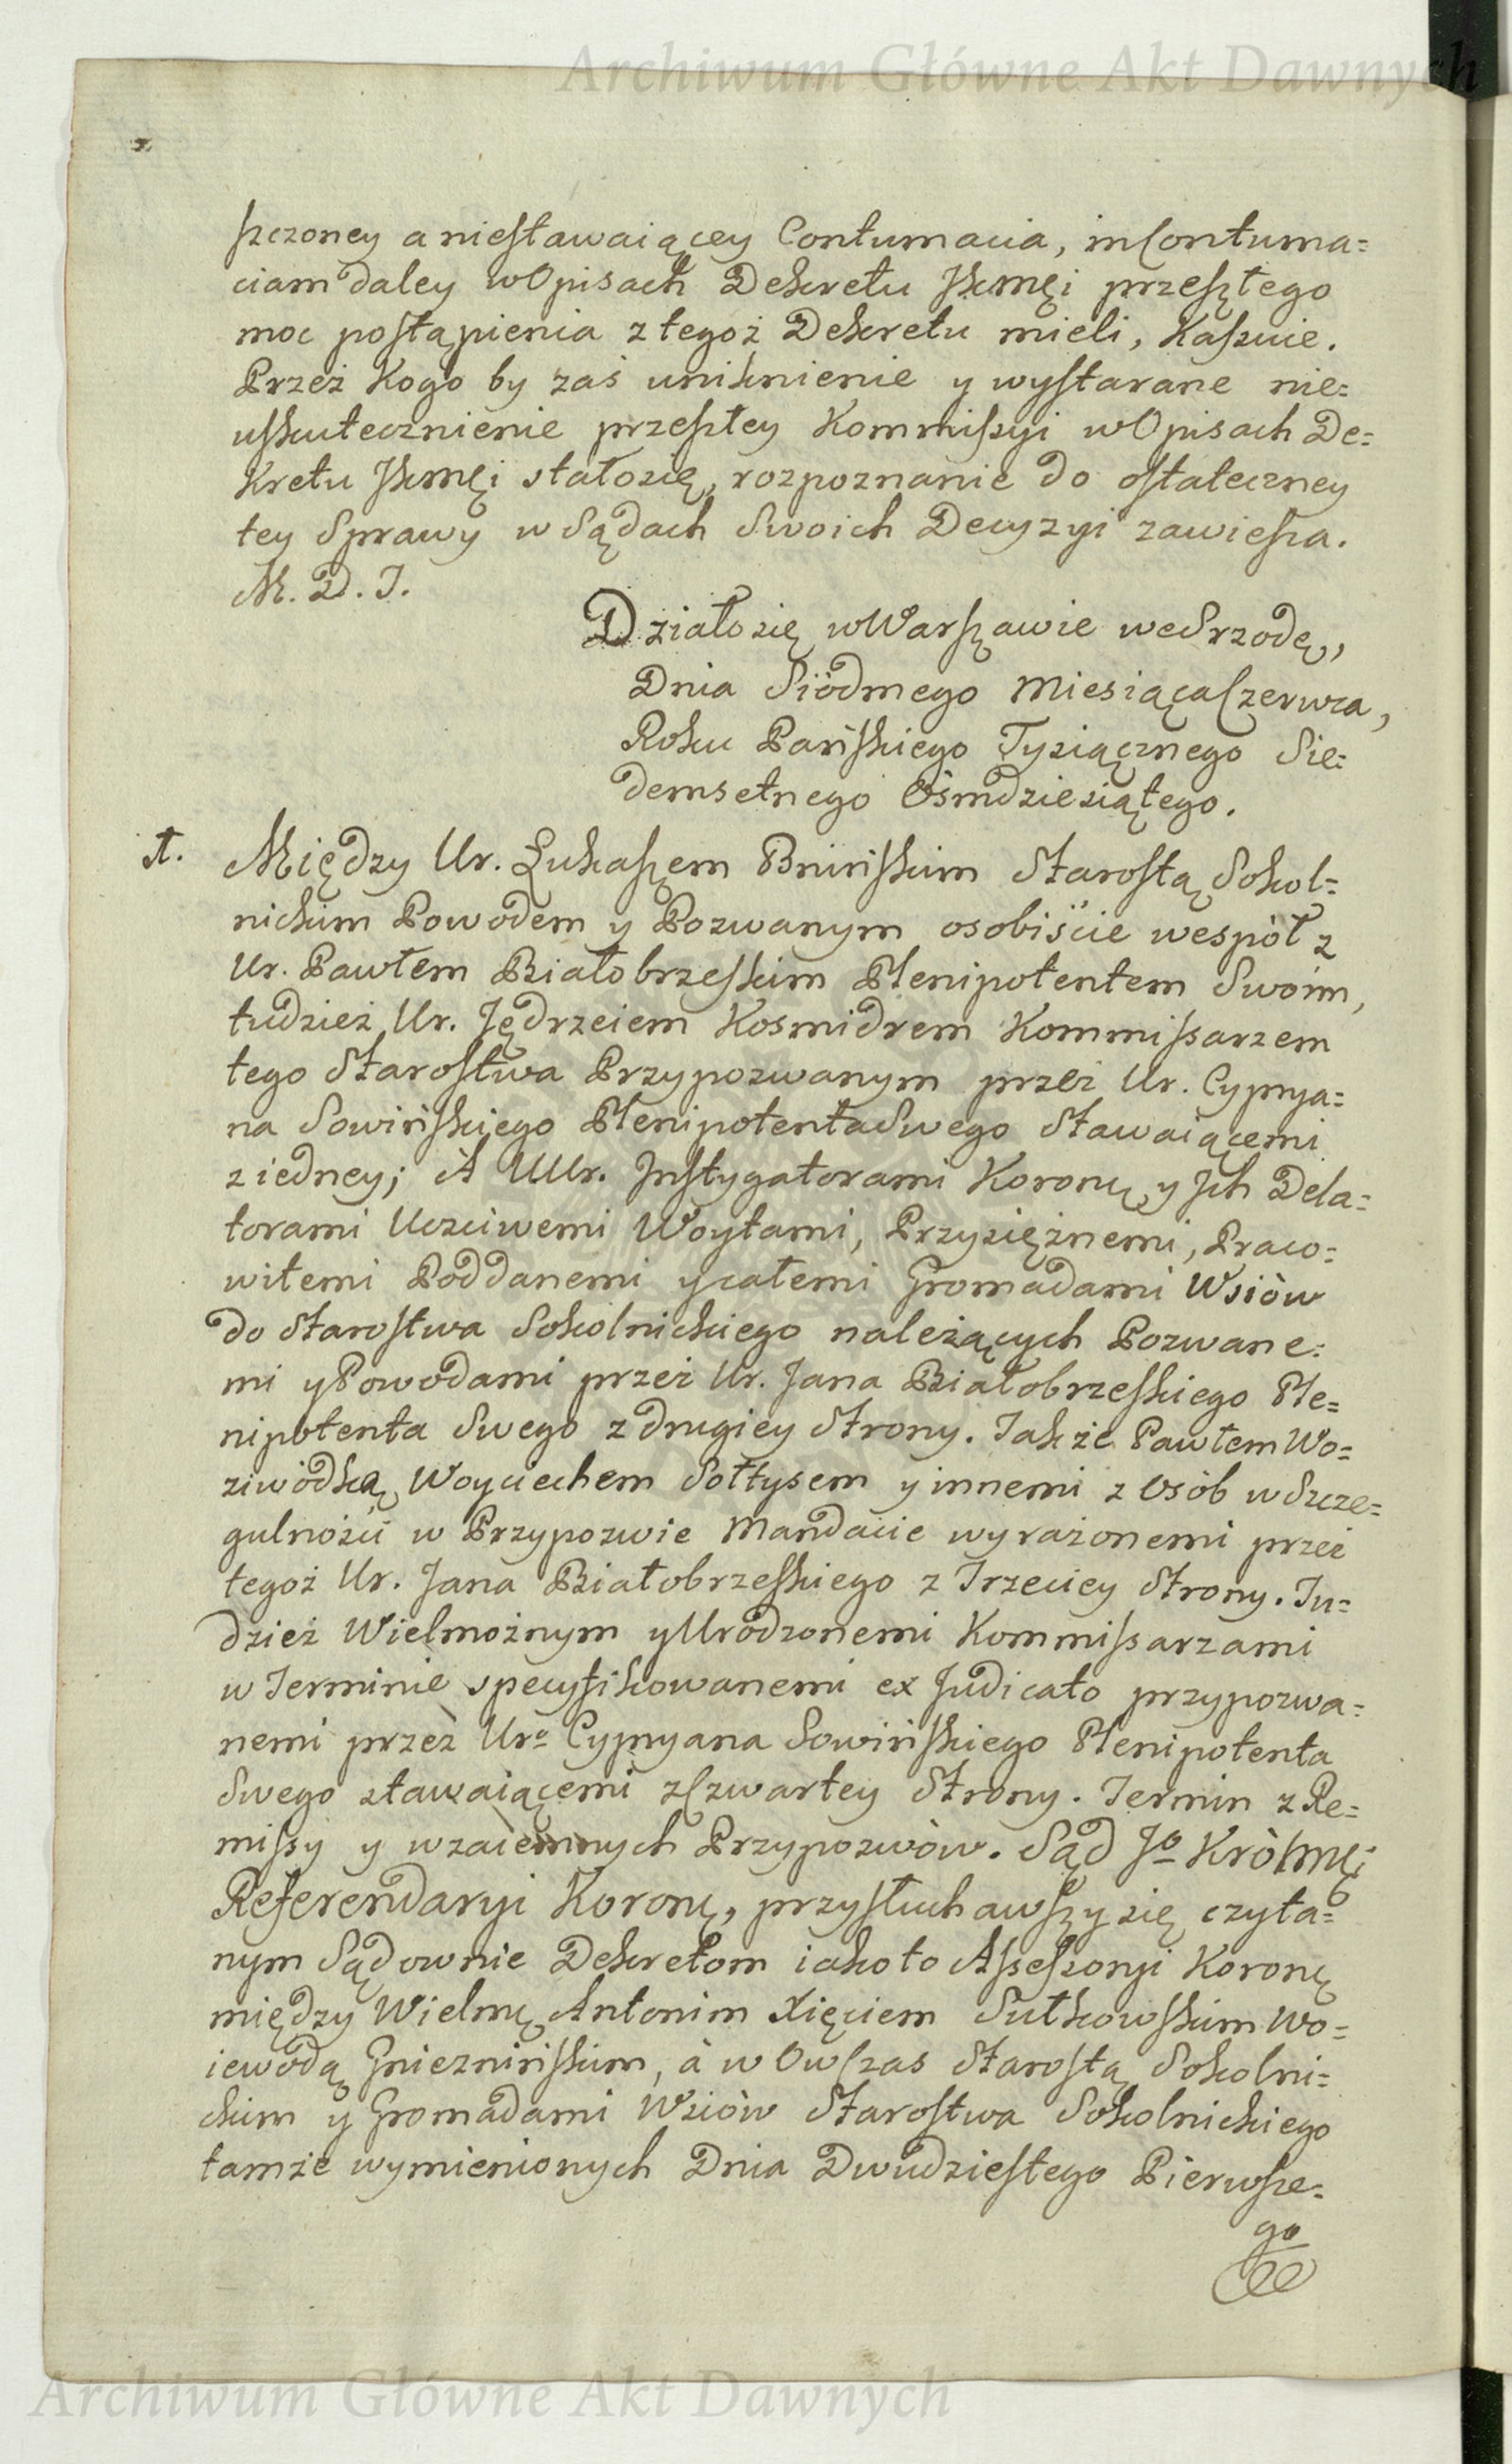 Archiwum Główne Akt Dawnych
szczoney a niestawaiącey Contumacia, in Contuma=
ciam daley w Opisach Dekretu JKmci przeszłego
moc postąpienia z tegoż Dekretu mieli, Kaszuie.
Przez Kogo by zaś uniknienie y wystarane nie=
uskutecznienie przeszłey Kommissyi w Opisach De=
kretu JKmci stało się, rozpoznanie do ostateczney
tey Sprawy w Sądach Swoich Decyzyi zawiesza.
M. D. J.
Działo się w Warszawie we Srzodę,
Dnia Siódmego Miesiąca Czerwca,
Roku Pańskiego Tysiącznego Sie=
demsetnego Osmdziesiątego.
A. Między Ur. Łukaszem Bnińskim Starostą Sokol=
nickim Powodem y Pozwanym osobiście wespół z
Ur. Pawłem Białobrzeskim Plenipotentem Swoim,
tudzież Ur. Jędrzeiem Kosmidrem Kommissarzem
tego Starostwa Przypozwanym przez Ur. Cyprya=
na Sowińskiego Plenipotenta Swego Stawaiącemi
z iedney; A UUr. Instygatorami Koronę y Ich Dela=
torami Uczciwemi Woytami, Przysiężnemi, Praco=
witemi Poddanemi y całemi Gromadami Wsiów
do Starostwa Sokolnickiego należących Pozwane=
mi y Powodami przez Ur. Jana Białobrzeskiego Ple=
nipotenta Swego z drugiey Strony. Jakże Pawłem Wo=
ziwódką, Woyciechem Sołtysem y innemi z Osób w Szcze=
gulności w Przypozwie Mandacie wyrażonemi przez
tegoż Ur. Jana Białobrzeskiego z Trzeciey Strony. Tu=
dzież Wielmożnym y Urodzonemi Kommissarzami
w Terminie specyfikowanemi ex Judicato przypozwa=
nemi przez Uro Cypryana Sowińskiego Plenipotenta
Swego stawaiącemi z Czwartey Strony. Termin z Re=
missy y wzaiemnych Przypozwów. Sąd Jo Królmci
Referendaryi Koronę, przysłuchawszy się czyta=
nym Sądownie Dekretom iako to Assessoryi Koronę
między Wielmę Antonim Xięciem Sułkowskim Wo=
iewodą Gnieznińskim, à w Ow Czas Starostą Sokolni=
ckim y Gromadami Wsiów Starostwa Sokolnickiego
tamże wymienionych Dnia Dwudziestego Pierwsze=
go
Archiwum Główne Akt Dawnych